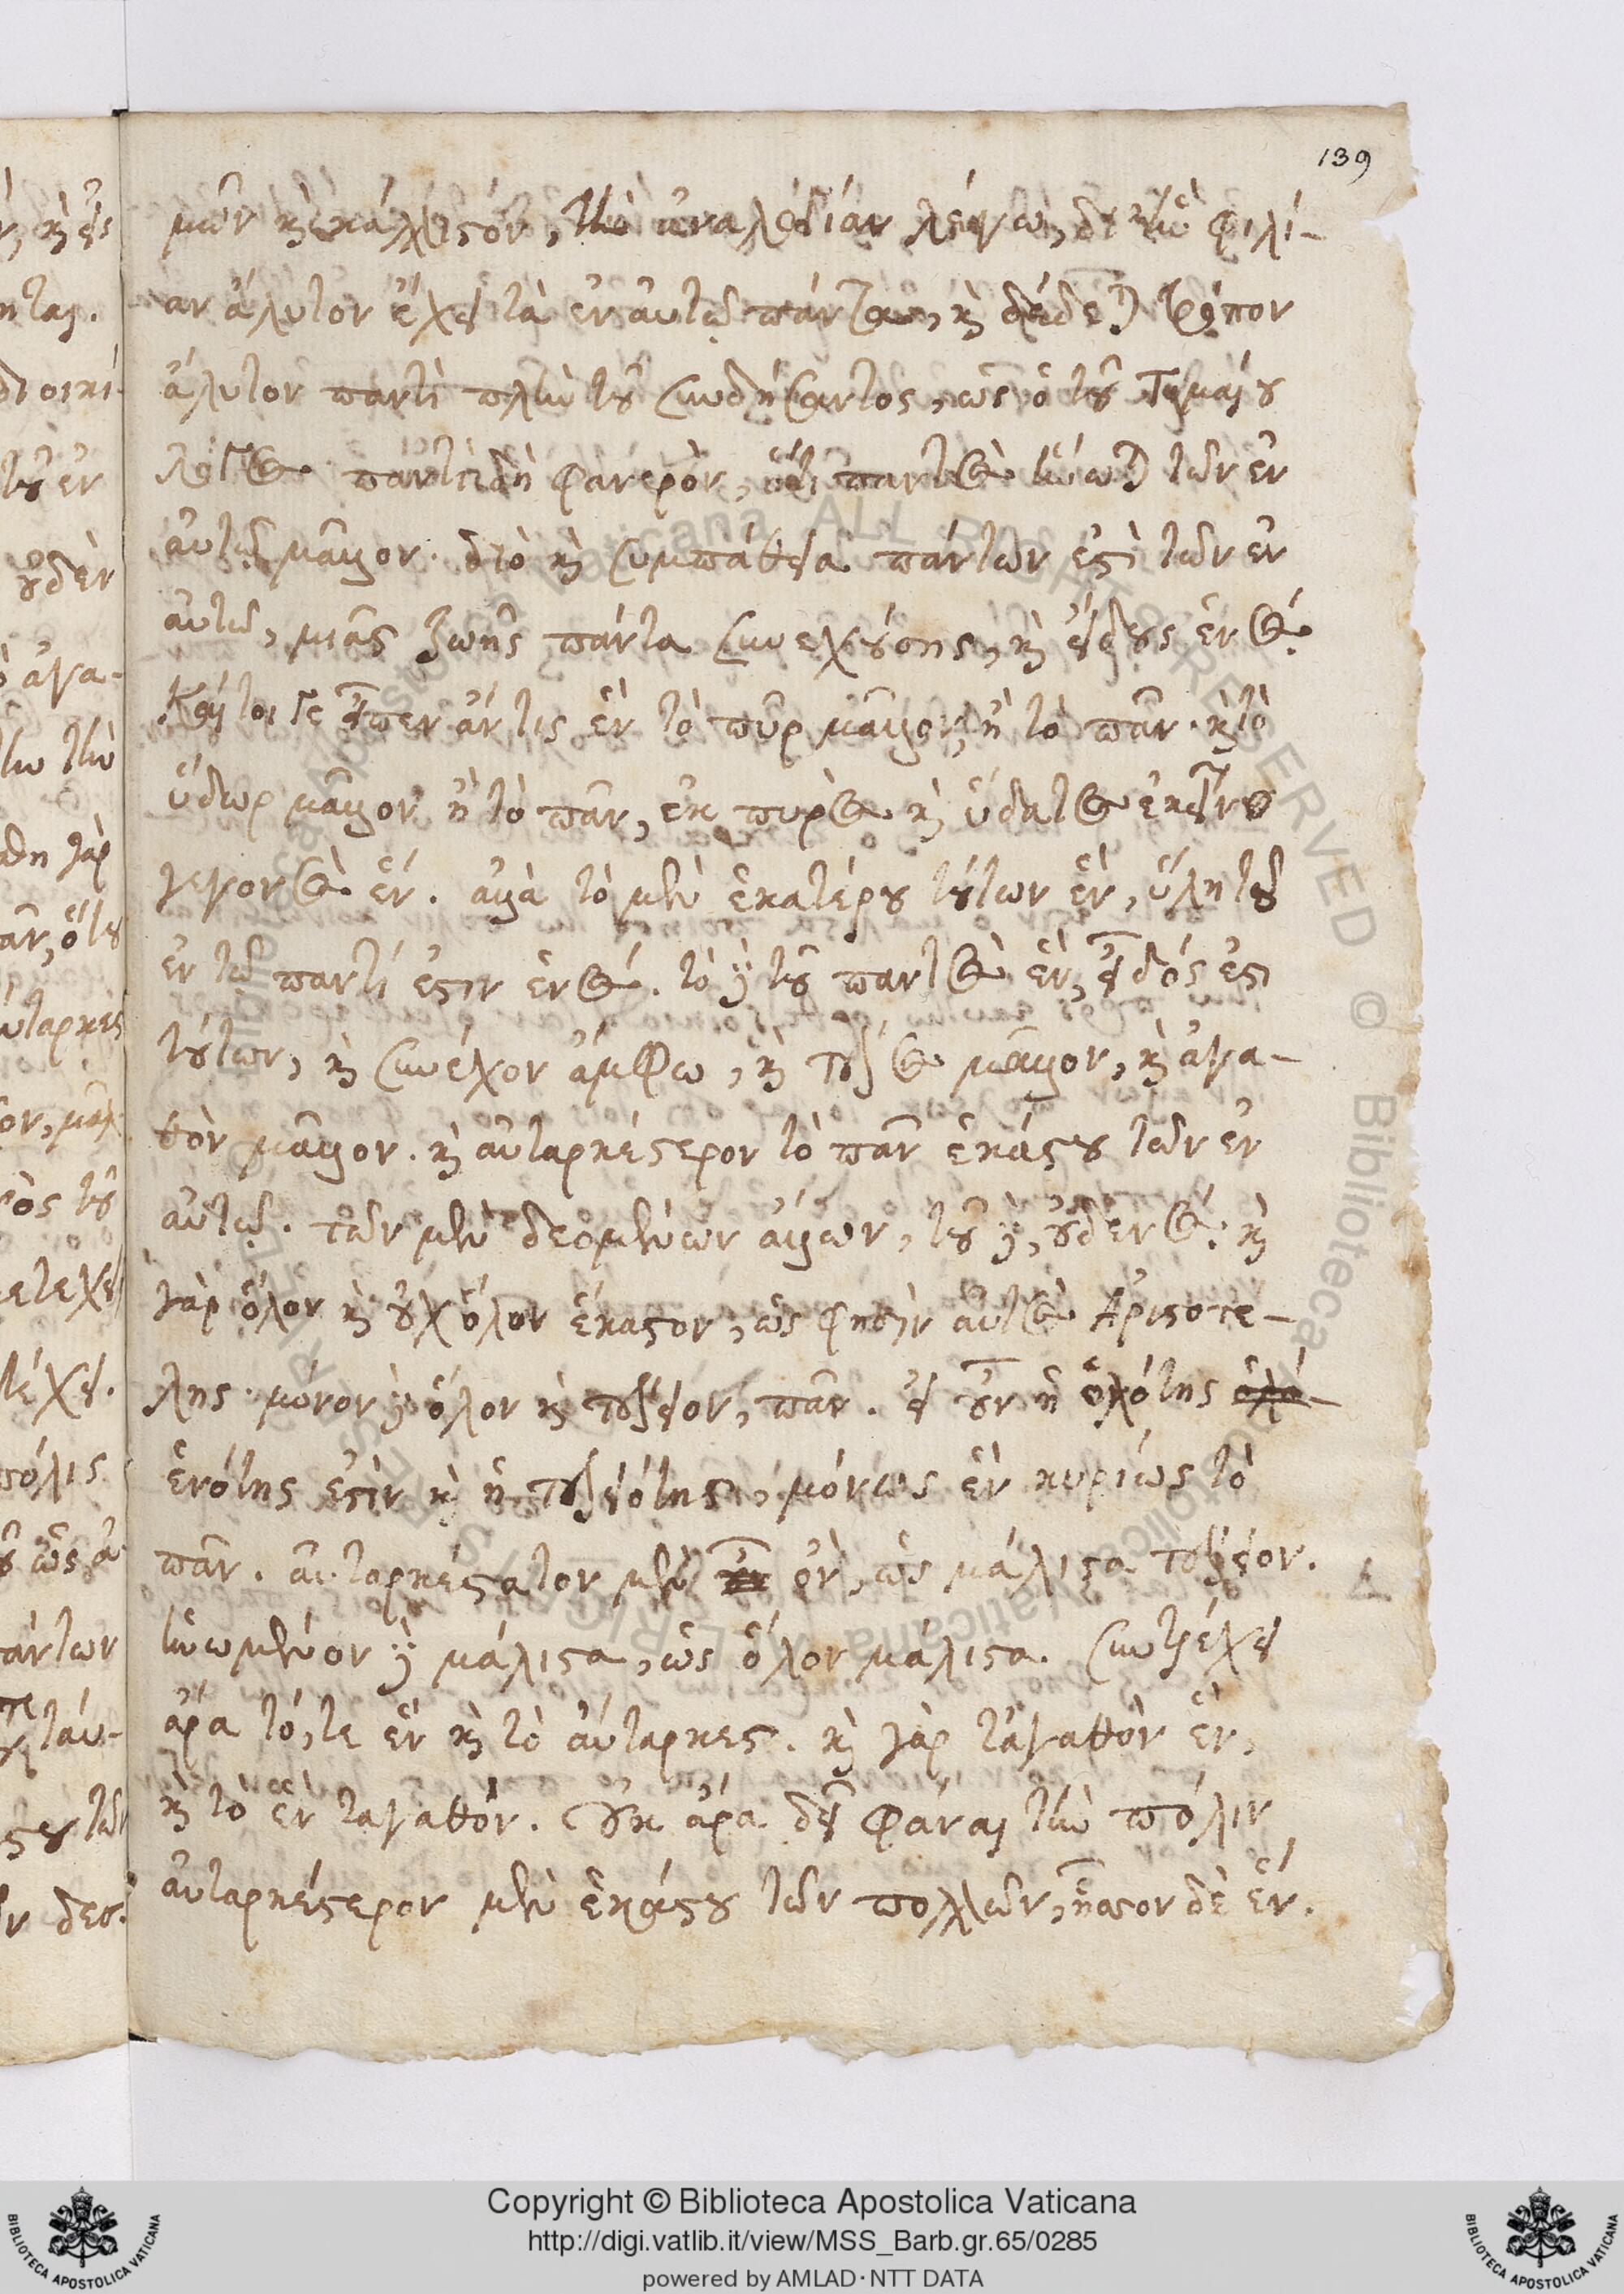 139
μῶν καὶ κάλλιστον, τὴν ἀναλογίαν λέγω, δι' ἣν φιλί-
αν ἄλυτον ἔχει τὰ ἐν αὐτῷ πάντα, καὶ δέδεται τρόπον
ἄλυτον παντὶ πλὴν τοῦ συνδήσαντος, ὡς ὁ τοῦ Τιμαίου
λόγος. παντὶ δὴ φανερὸν, ὅτι παντὸς ἥνωται τῶν ἐν
αὐτῷ μᾶλλον. διὸ καὶ συμπάθεια πάντων ἐστὶ τῶν ἐν
αὐτῷ, μιᾶς ζωῆς πάντα συνεχούσης, καὶ εἴδους ἑνός.
Καίτοι γε εἶπεν ἄν τις ἓν τὸ πῦρ μᾶλλον, ἢ τὸ πᾶν. καὶ τὸ
ὕδωρ μᾶλλον ἢ τὸ πᾶν, ἐκ πυρὸς καὶ ὕδατος ἐκεῖνο
γεγονὸς ἕν. ἀλλὰ τὸ μὲν ἑκατέρου τούτων ἓν, ὕλη τοῦ
ἐν τῷ παντί ἐστιν ἑνός. τὸ δὲ τοῦ παντὸς ἓν, εἶδός ἐστι
τούτων, καὶ συνέχον ἄμφω, καὶ τέλος μᾶλλον, καὶ ἀγα-
θὸν μᾶλλον. καὶ αὐταρκέστερον τὸ πᾶν ἑκάστου τῶν ἐν
αὐτῷ. τῶν μὲν δεομένων ἄλλων, τοῦ δὲ, οὐδενός. καὶ
γὰρ ὅλον καὶ οὐχ ὅλον ἕκαστον, ὥς φησιν αὐτὸς Ἀριστοτέ-
λης. μόνον δὲ ὅλον καὶ τέλειον, πᾶν. εἰ οὖν ἡ ὁλότης
ἑνότης ἐστὶν καὶ ἡ τελειότης, μόνως ἓν κυρίως τὸ
πᾶν. αὐταρκέστατον μὲν ὂν, ὡς μάλιστα τέλειον.
ἡνωμένον δὲ μάλιστα, ὡς ὅλον μάλιστα. συντρέχει
ἄρα τό, τε ἓν καὶ τὸ αὔταρκες. καὶ γὰρ τἀγαθὸν ἓν,
καὶ τὸ ἓν ταγαθόν. Οὐκ ἄρα δεῖ φάναι τὴν πόλιν
αὐταρκέστερον μὲν ἑκάστου τῶν πολλῶν, ἧσσον δὲ ἕν.
Copyright © Biblioteca Apostolica Vaticana
http://digi.vatlib.it/view/MSS_Barb.gr.65/0285
powered by AMLAD·NTT DATA